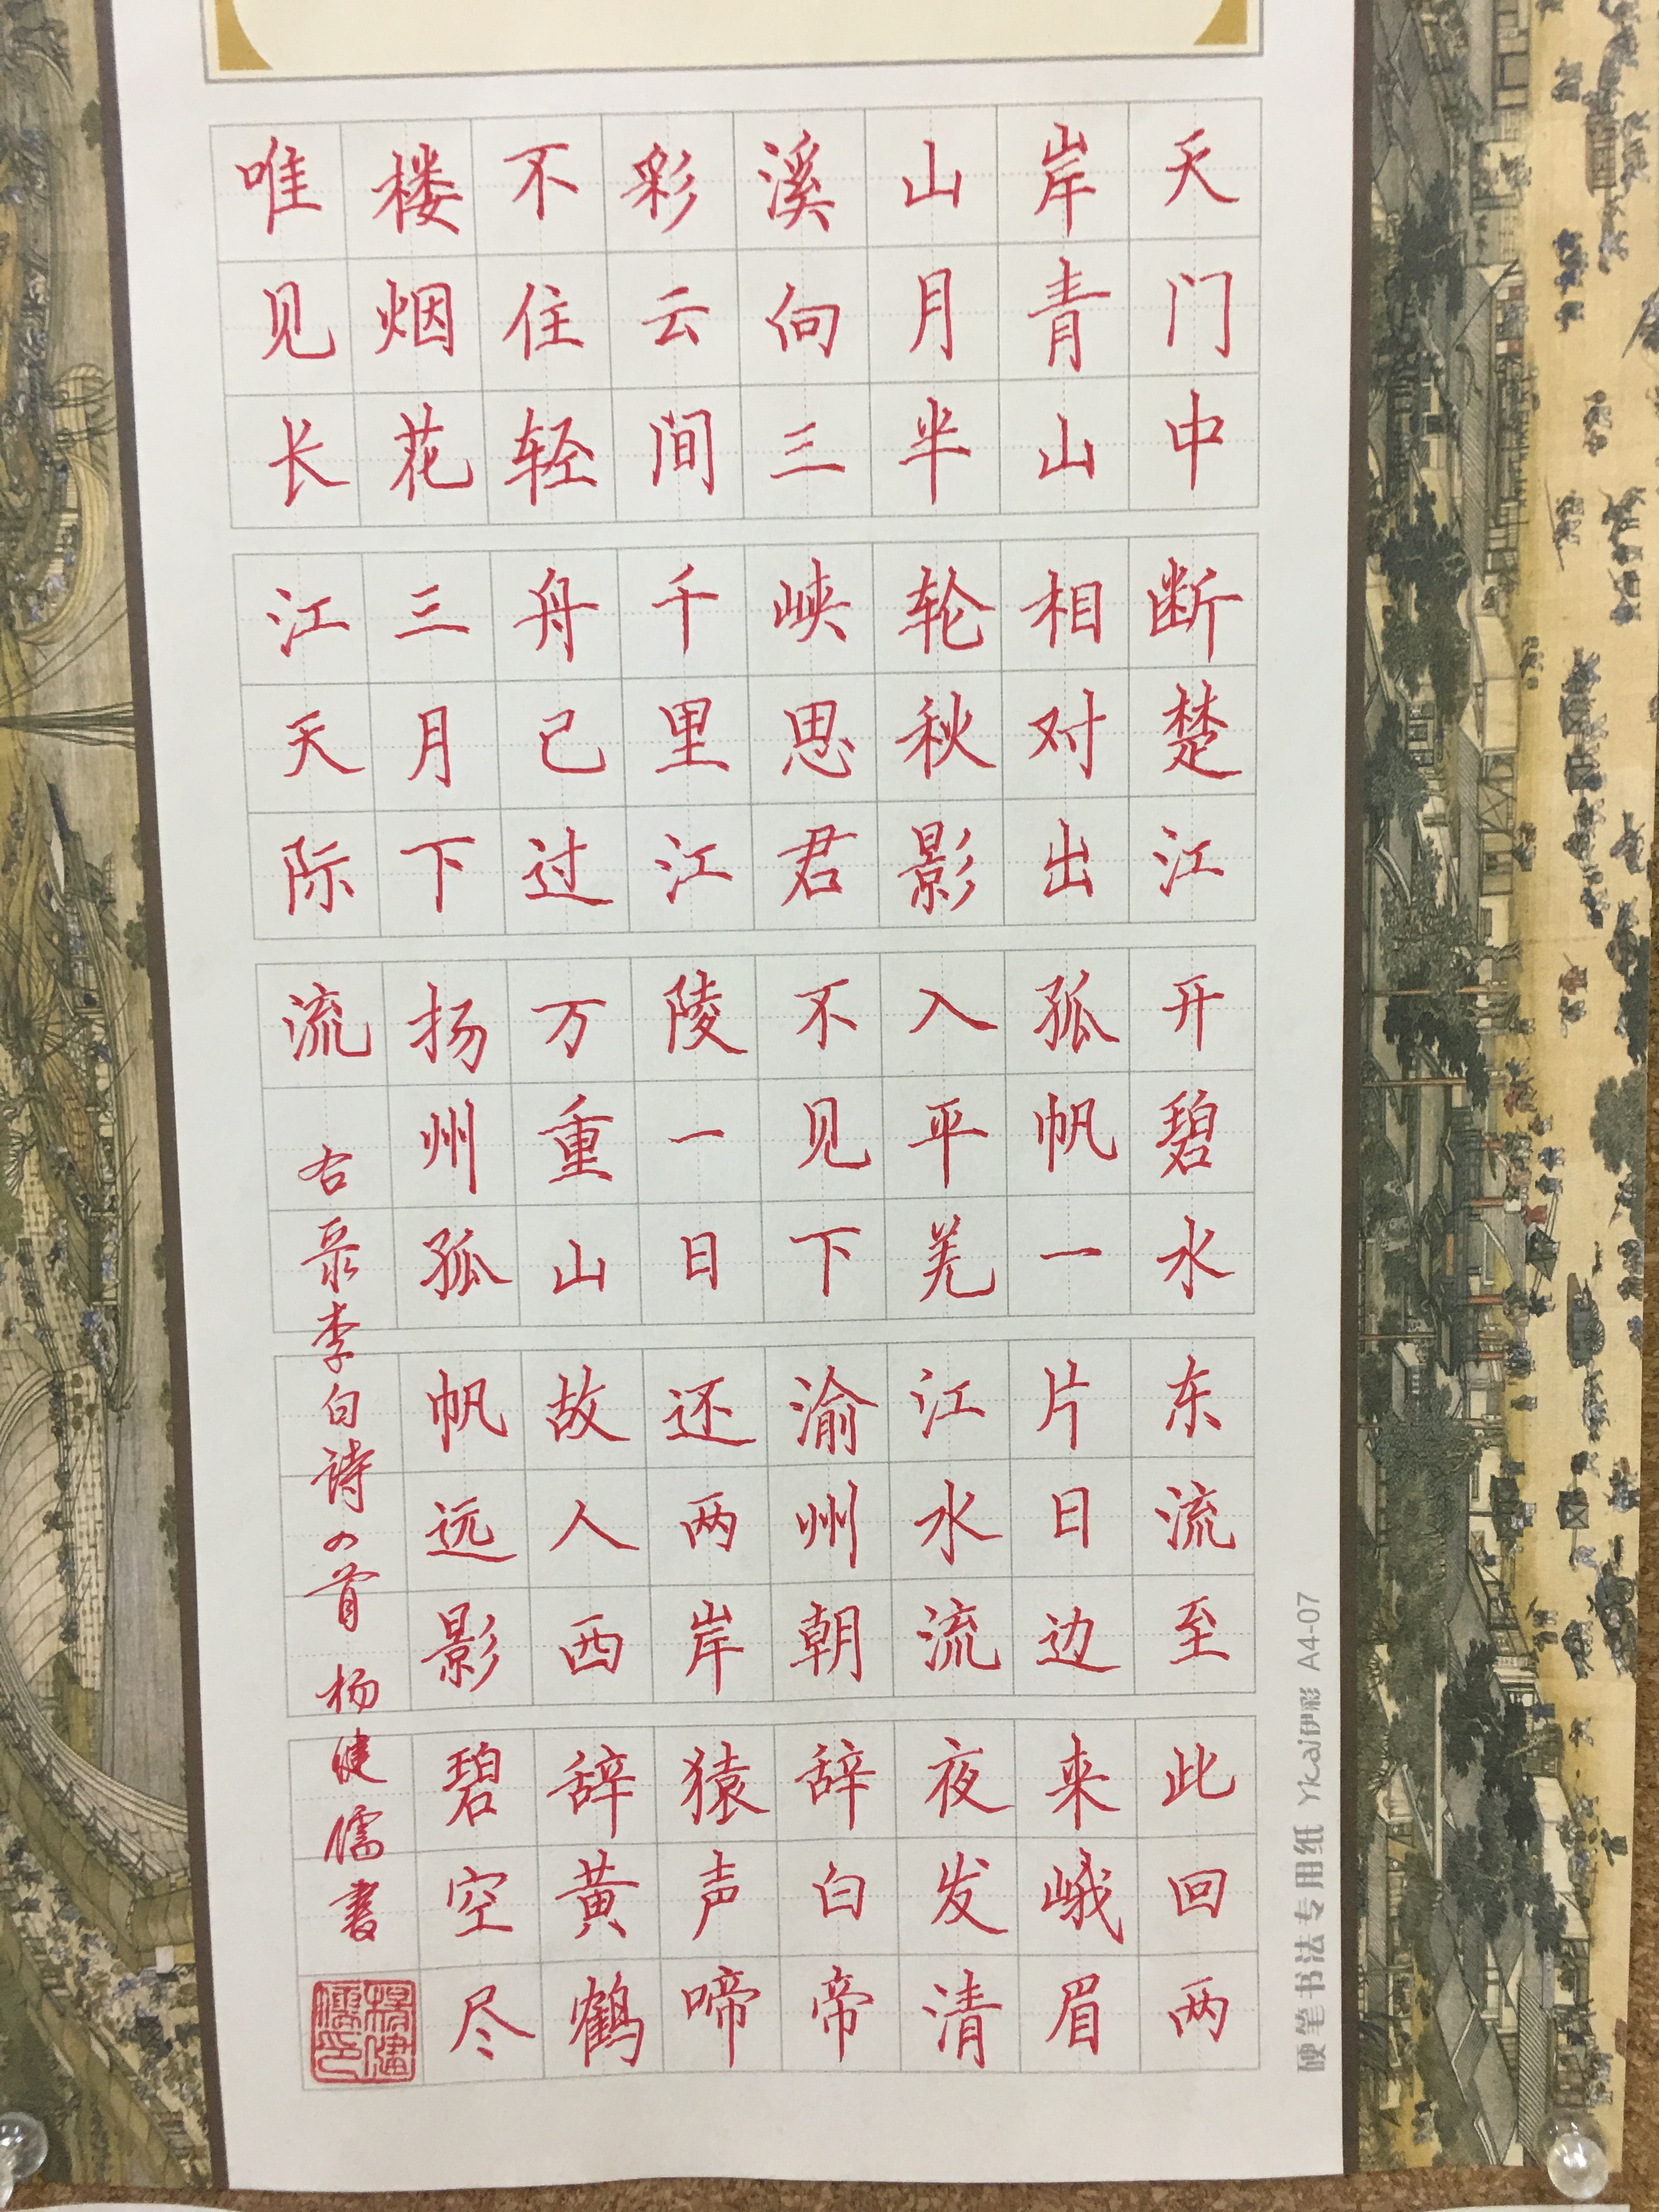 天门中断楚江开碧水东流至此回两
岸青山相对出孤帆一片日边来峨眉
山月半轮秋影入平羌江水流夜发清
溪向三峡思君不见下渝州朝辞白帝
彩云间千里江陵一日还两岸猿声啼
不住轻舟已过万重山故人西辞黄鹤
楼烟花三月下扬州孤帆远影碧空尽
唯见长江天际流
右录李白诗四首 杨健儒书
杨健儒印
硬笔书法专用纸 Ykai伊彩 A4-07